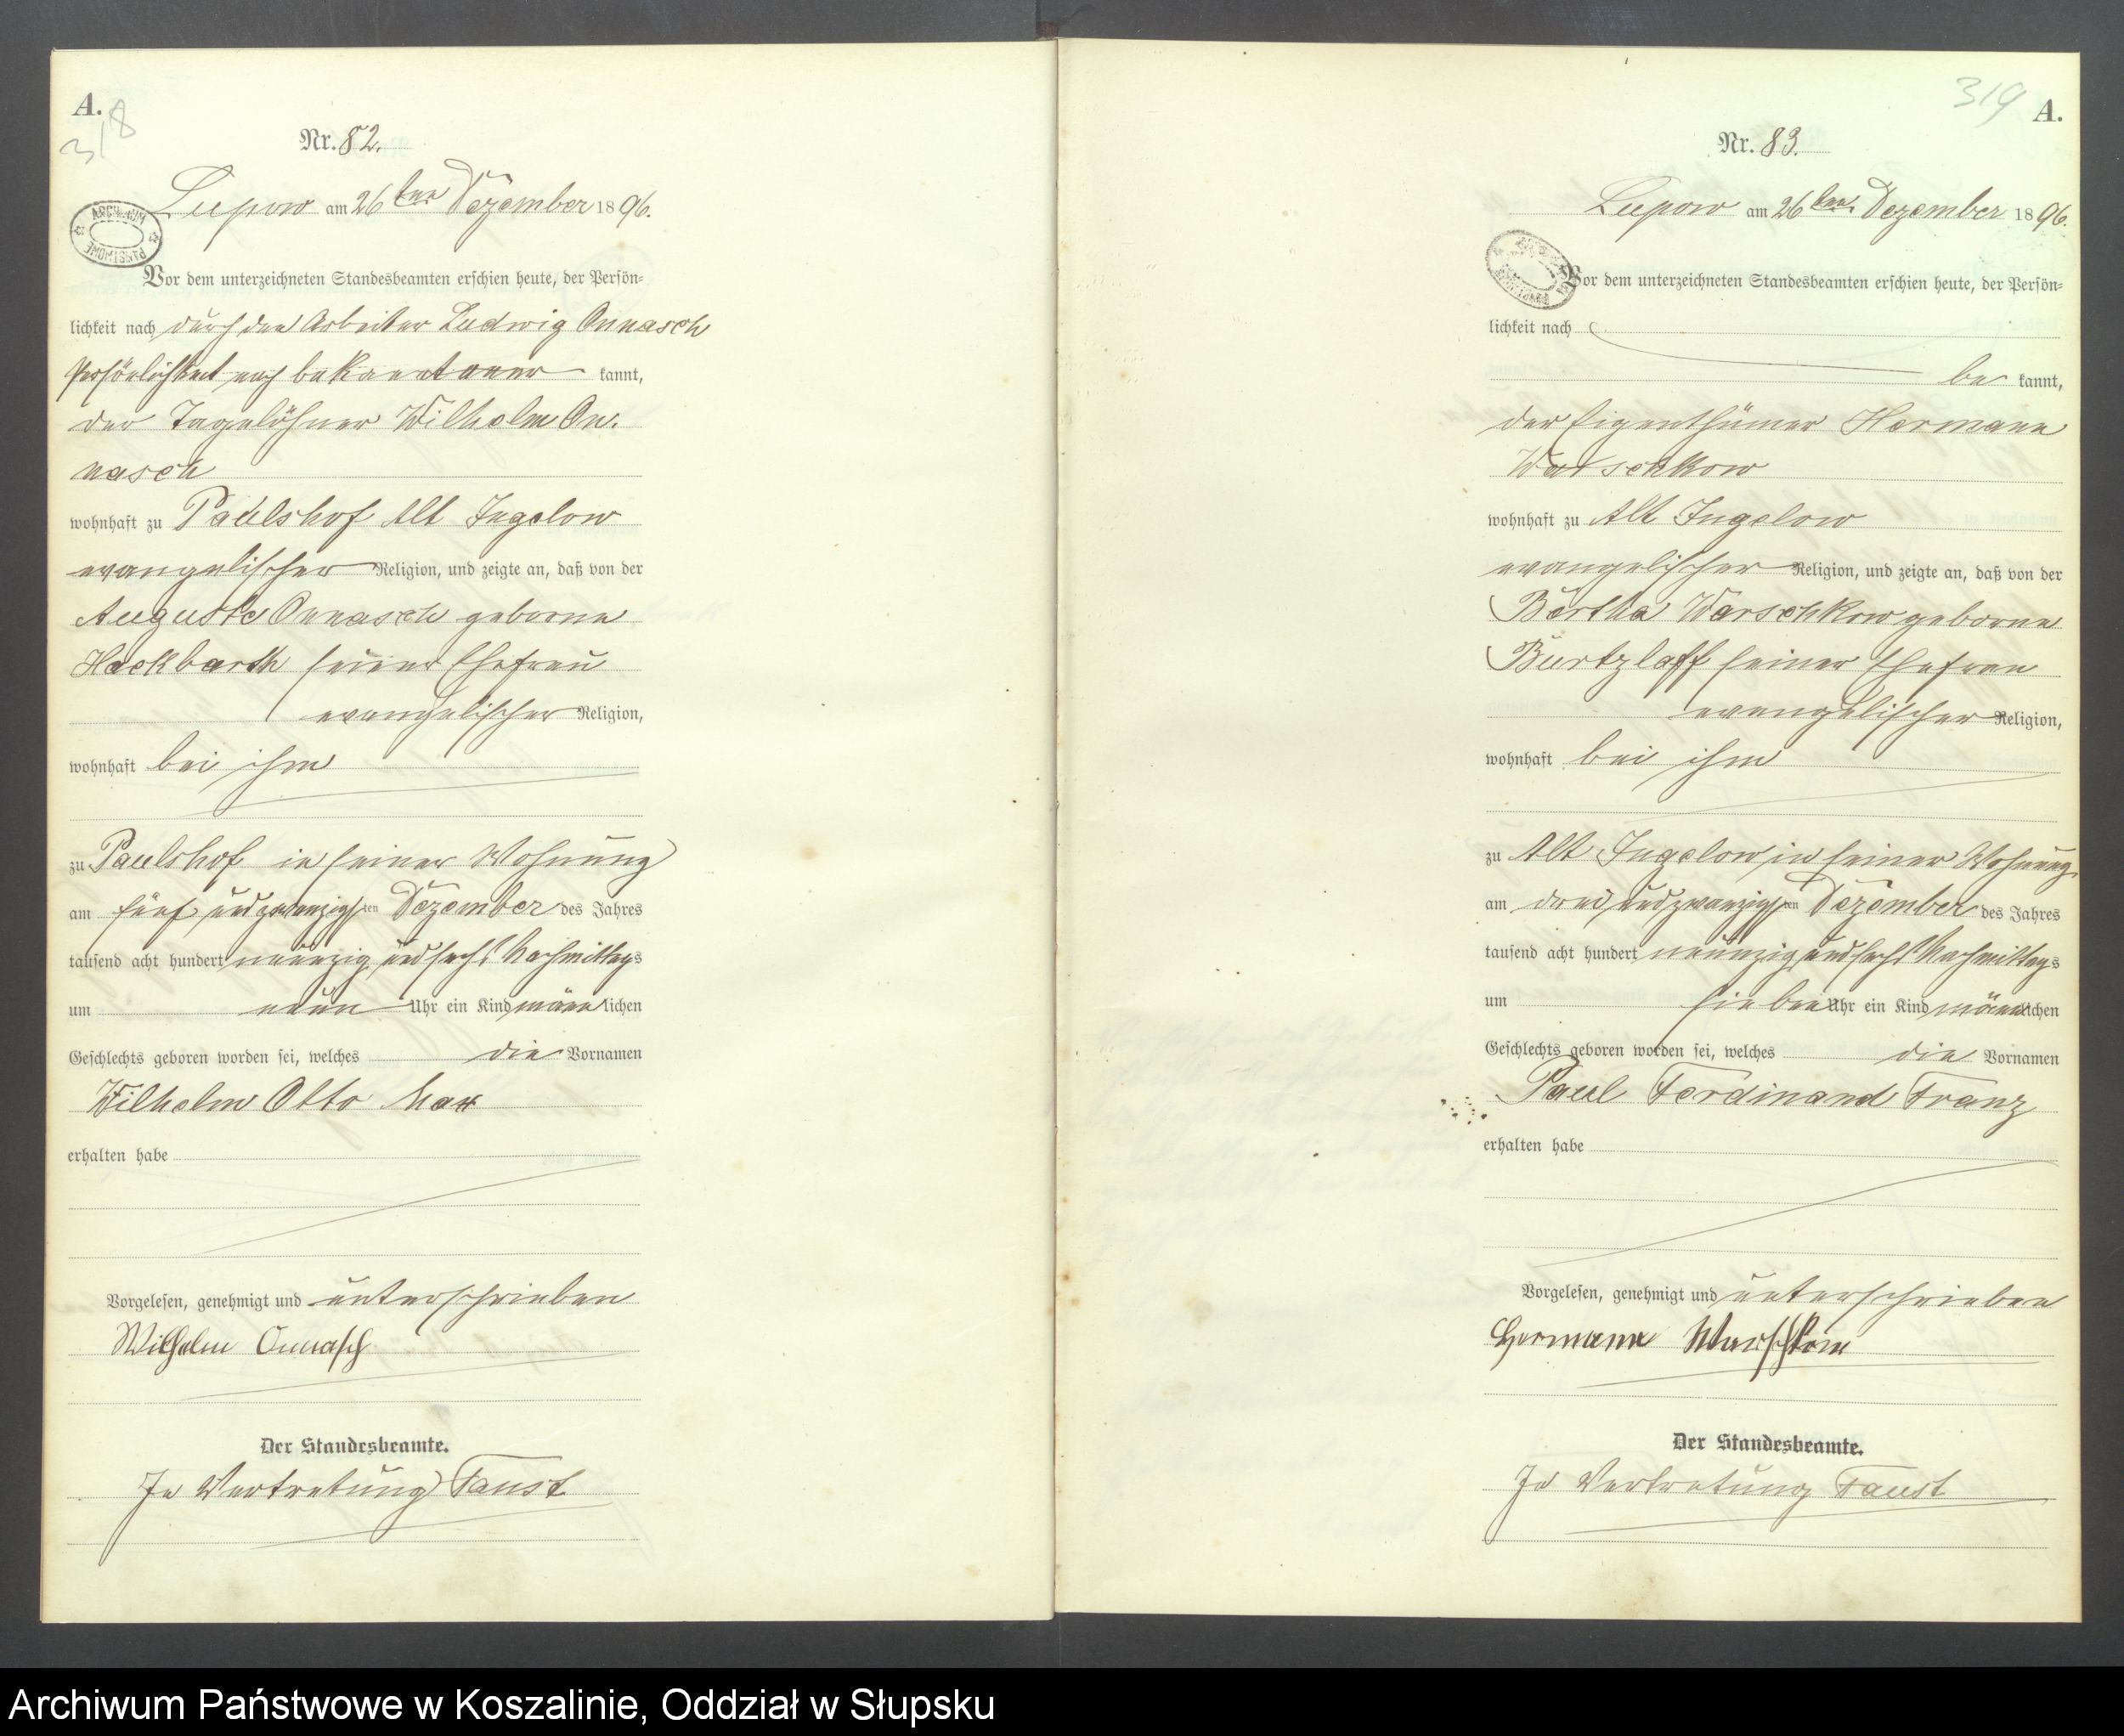 A.
318
Nr. 82.
Lupow am 26ten Dezember 1896.
ARCHIWUM PAŃSTWOWE
Vor dem unterzeichneten Standesbeamten erschien heute, der Persön=
lichkeit nach durch den Arbeiter Ludwig Onnasch
Persönlichkeit nach bekannt kannt,
der Tagelöhner Wilhelm On-
nasch
wohnhaft zu Paulshof Alt Jugelow
evangelischer Religion, und zeigte an, daß von der
Auguste Onnasch geborne
Hackbarth seiner Ehefrau
evangelischer Religion,
wohnhaft bei ihm
zu Paulshof in seiner Wohnung
am fünf und zwanzigsten Dezember des Jahres
tausend acht hundert neunzig und sechs Nachmittags
um neun Uhr ein Kind männlichen
Geschlechts geboren worden sei, welches die Vornamen
Wilhelm Otto Max
erhalten habe
Vorgelesen, genehmigt und unterschrieben
Wilhelm Onnasch
Der Standesbeamte.
In Vertretung Faust
319
A.
Nr. 83.
Lupow am 26ten Dezember 1896.
Vor dem unterzeichneten Standesbeamten erschien heute, der Persön=
lichkeit nach
be kannt,
der Eigenthümer Hermann
Warschkow
wohnhaft zu Alt Jugelow
evangelischer Religion, und zeigte an, daß von der
Bertha Warschkow geborne
Burtzlaff seiner Ehefrau
evangelischer Religion,
wohnhaft bei ihm
zu Alt Jugelow in seiner Wohnung
am drei und zwanzigsten Dezember des Jahres
tausend acht hundert neunzig und sechs Nachmittags
um sieben Uhr ein Kind männlichen
Geschlechts geboren worden sei, welches die Vornamen
Paul Ferdinand Franz
erhalten habe
Vorgelesen, genehmigt und unterschrieben
Hermann Warschkow
Der Standesbeamte.
In Vertretung Faust
Archiwum Państwowe w Koszalinie, Oddział w Słupsku